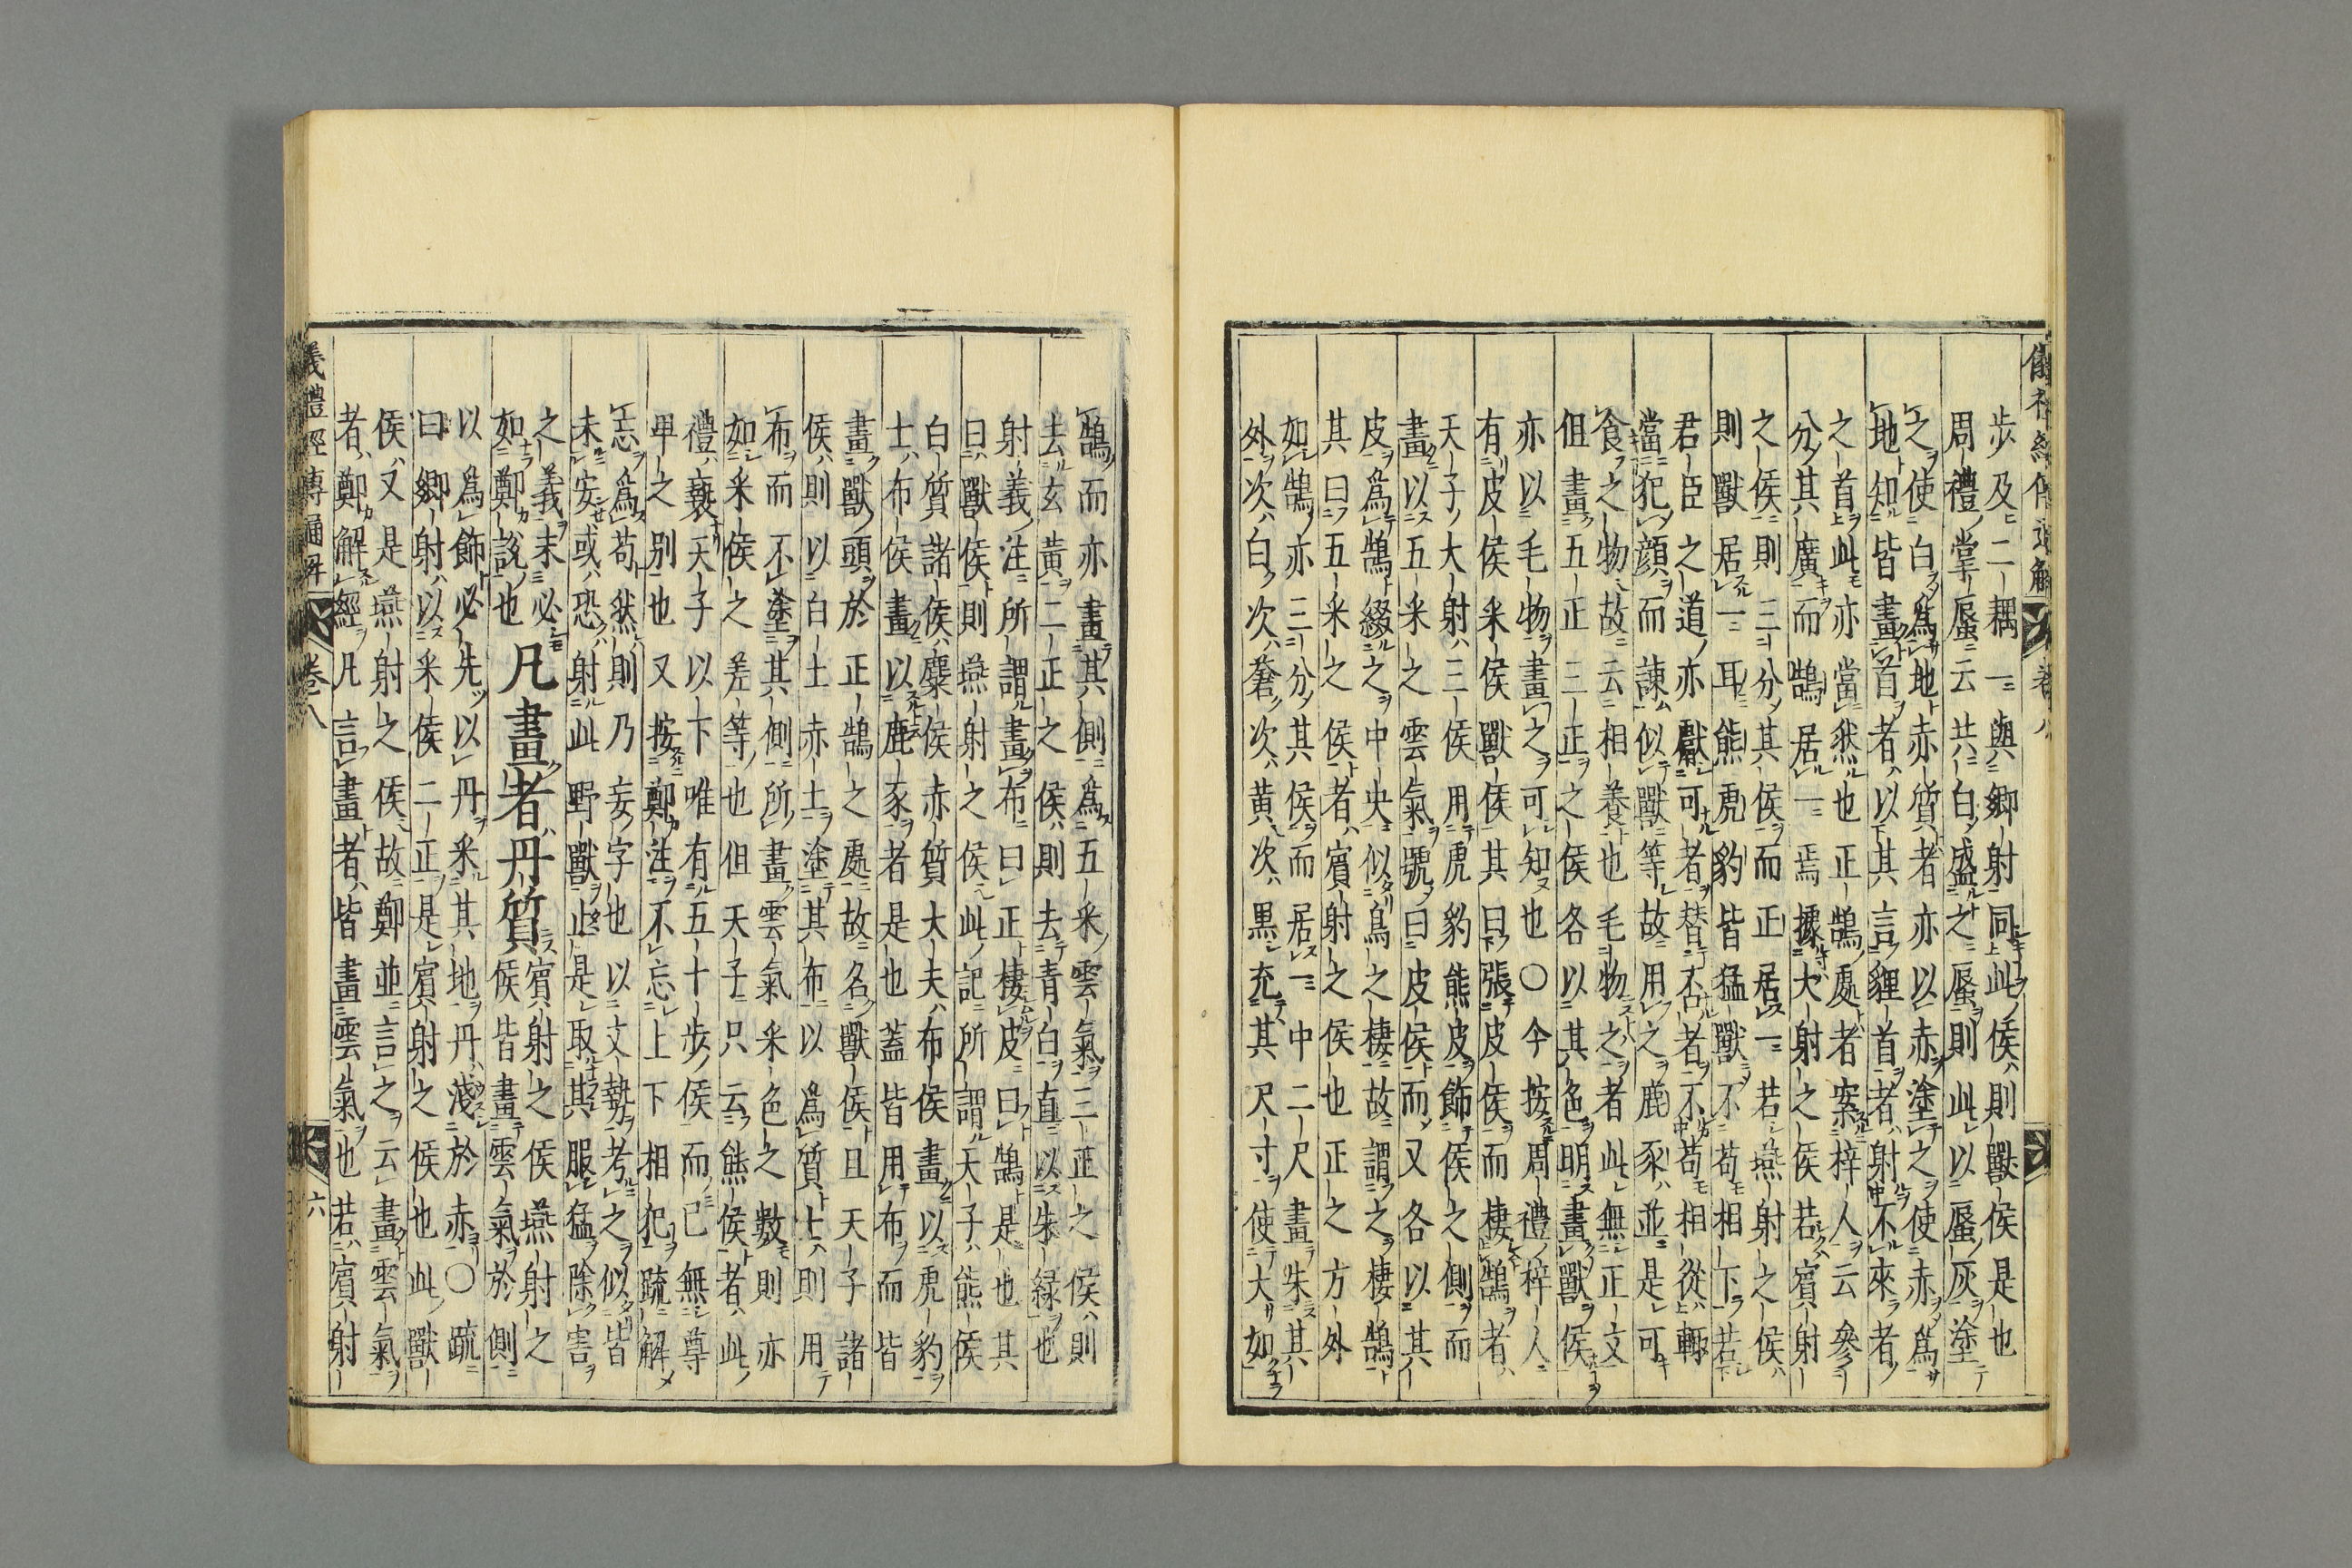 歩及二耦一與卿射同此侯則獸侯是也
周禮掌蜃云共白盛之蜃則此以蜃灰塗
之使白爲地赤質者亦以赤塗之使赤爲
地知皆畫首者以其言貍首者射不來者
之首此亦當然也正鵠處者案梓人云參
分其廣而鵠居一焉據大射之侯若賓射
之侯則三分其侯而正居一若燕射之侯
則獸居一耳熊虎豹皆猛獸不苟相下若
君臣之道亦獻可者替不者不苟相從輙
當犯顔而諫似獸等故用之鹿豕並是可
食之物故云相養也毛物之者此無正文
但畫五正三正之侯各以其色明畫獸侯
亦以毛物畫之可知也〇今按周禮梓人
有皮侯采侯獸侯其曰張皮侯而棲鵠者
天子大射三侯用虎豹熊皮飾侯之側而
畫以五采之雲氣號曰皮侯而又各以其
皮爲鵠綴之中央似鳥之棲故謂之棲鵠
其曰五采之侯者賓射之侯也正之方外
如鵠亦三分其侯而居一中二尺畫朱其
外次白次蒼次黄次黒充其尺寸使大如
鵠而亦畫其側爲五采雲氣三正之侯則
去玄黄二正之侯則去青白直以朱緑也
射義注所謂畫布曰正棲皮曰鵠是也其
曰獸侯則燕射之侯此記所謂天子熊侯
白質諸侯麋侯赤質大夫布侯畫以虎豹
士布侯畫以鹿豕者是也蓋皆用布而皆
畫獸頭於正鵠之處故名獸侯且天子諸
侯則以白土赤土塗其布以爲質士則用
布而不塗其側所畫雲氣采色之數則亦
如采侯之差等也但天子只云熊侯者此
禮褻天子以下唯有五十歩侯而已無尊
卑之别也又按鄭注不忘上下相犯疏解
忘爲苟然則乃妄字也以文勢考之似皆
未安或恐射此野獸止是取其服猛除害
之義未必如鄭説也凡畫者丹質賓射之侯燕射之
侯皆畫雲氣於側
以爲飾必先以丹采其地丹淺於赤〇疏
曰卿射以采侯二正是賓射之侯也此獸
侯又是燕射之侯故鄭並言之云畫雲氣
者鄭解經凡言畫者皆畫雲氣也若賓射
儀禮經傳通解
卷八
六